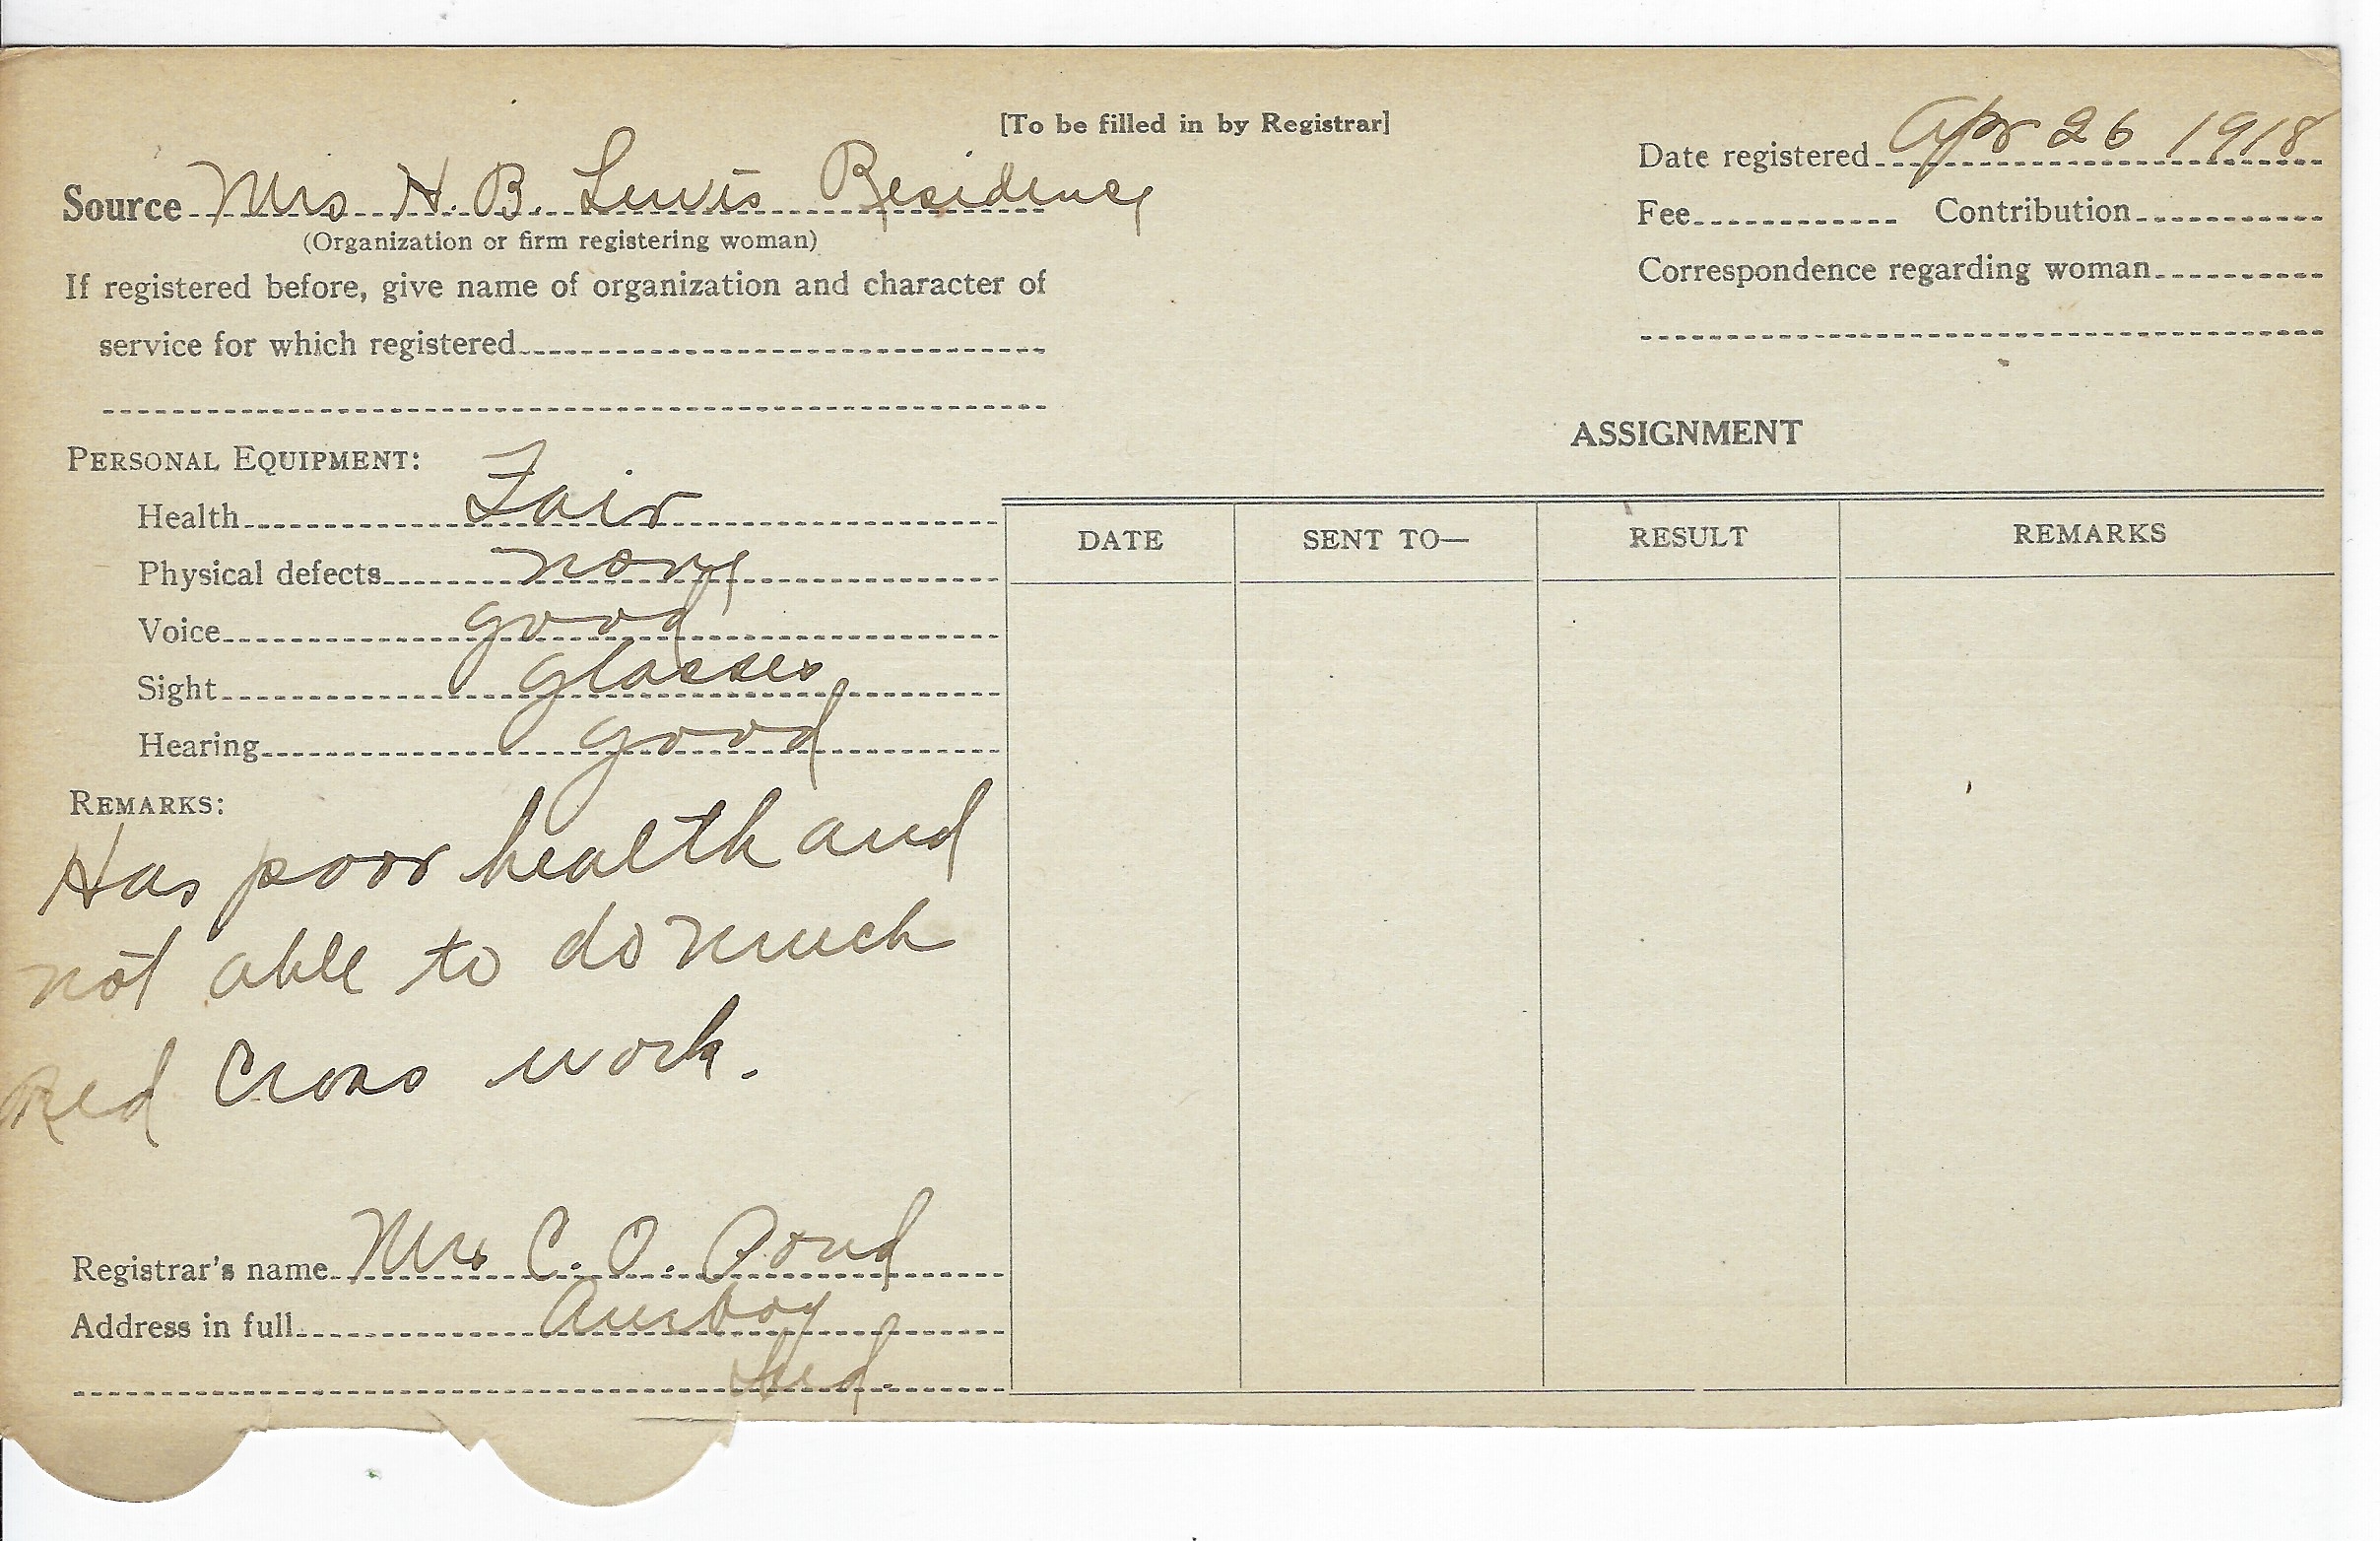 [To be filled in by Registrar]
Date registered Apr 26 1918
Source Mrs H. B. Lewis Residence
(Organization or firm registering woman)
Fee Contribution
If registered before, give name of organization and character of
Correspondence regarding woman
service for which registered
ASSIGNMENT
PERSONAL EQUIPMENT:
Health Fair
DATE SENT TO— RESULT REMARKS
Physical defects none
Voice good
Sight glasses
Hearing good
REMARKS:
Has poor health and
not able to do much
Red Cross work.
Registrar's name Mrs C. O. Pond
Address in full Amboy
Ind.